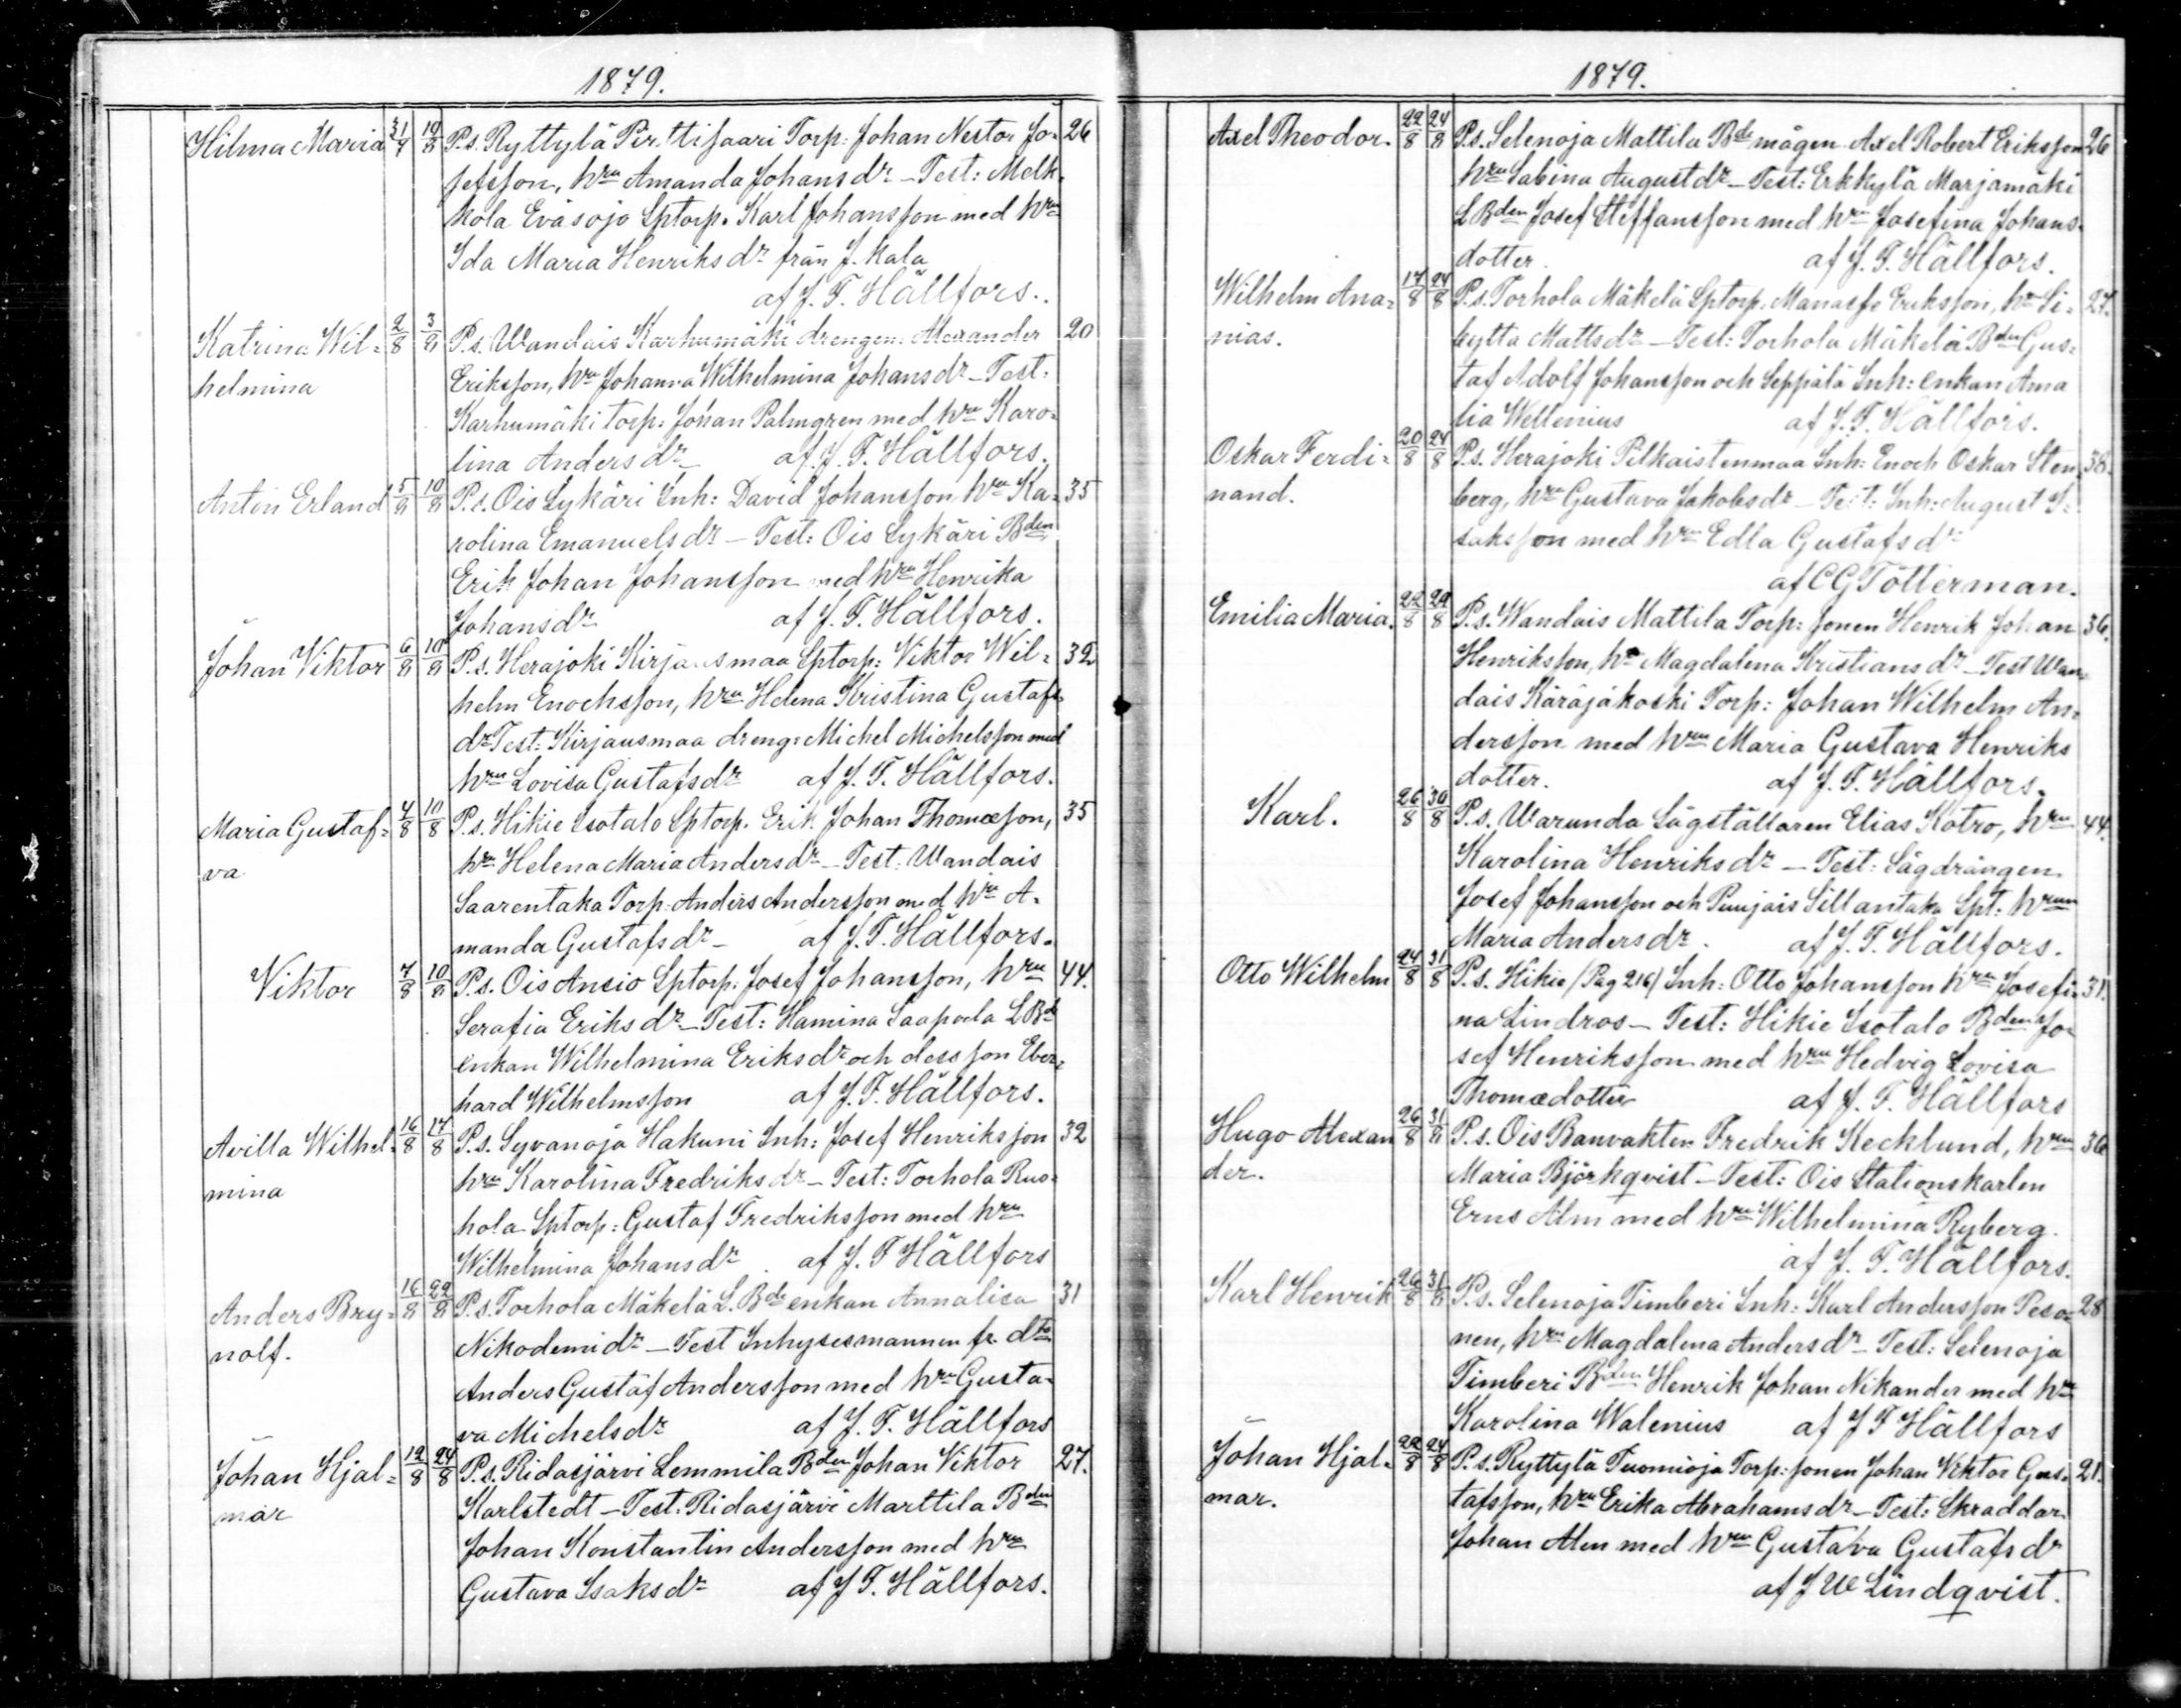 1879.
Hilma Maria 31/7 10/8 P.s. Ryttylä Pirttisaari Torp: Johan Nestor Jo- 26
sefsson, hru Amanda Johansdr - Test: Melk-
kola Eväsojo Sptorp. Karl Johansson med hru
Ida Maria Henriksdr från J. kala
af J. F. Hällfors.
Katrina Wil- 2/8 3/8 P.s. Wandais Karhumäki drengen Alexander 20
helmina Eriksson, hru Johanna Wilhelmina Johansdr - Test:
Karhumäki torp: Johan Palmgren med hru Karo-
lina Andersdr af J. F. Hällfors.
Anton Erland 5/8 10/8 P.s. Ois Sykäri Inh: David Johansson hru Ka- 35
rolina Emanuelsdr - Test: Ois Sykäri Bden
Erik Johan Johansson med hru Henrika
Johansdr af J. F. Hällfors.
Johan Viktor 6/8 10/8 P.s. Herajoki Kirjausmaa Sptorp: Viktor Wil- 32
helm Enochsson, hru Helena Kristina Gustafs
dr Test: Kirjausmaa dreng: Michel Michelsson med
hru Lovisa Gustafsdr af J. F. Hällfors.
Maria Gustaf- 4/8 10/8 P.s. Hikie Isotalo Sptorp. Erik Johan Thomæson, 35
va hru Helena Maria Andersdr - Test. Wandais
Saarentaka Torp: Anders Andersson med hru A-
manda Gustafsdr - af J. F. Hällfors.
Viktor 7/8 10/8 P.s. Ois Ansio Sptorp. Josef Johansson, hru 44.
Serafia Eriksdr - Test: Hamina Saapola LBde
enkan Wilhelmina Eriksdr och dess son Eber-
hard Wilhelmsson af J. F. Hällfors.
Avilla Wilhel- 16/8 17/8 P.s. Syvänoja Hakuni Inh: Josef Henriksson 32
mina hru Karolina Fredriksdr - Test: Torhola Ruo-
hola Sptorp: Gustaf Fredriksson med hru
Wilhelmina Johansdr af J. F Hällfors
Anders Bry- 16/8 22/8 P.s. Torhola Mäkelä L. Bde enkan Annalisa 31
nolf. Nikodemidr - Test Inhysesmannen fr. dto
Anders Gustaf Andersson med hru Gusta-
va Michelsdr af J. F. Hällfors
Johan Hjal- 12/8 24/8 P.s. Ridasjärvi Lemmila Bden Johan Viktor 27.
mar Karlstedt - Test: Ridasjärvi Marttila Bden
Johan Konstantin Andersson med hru
Gustava Isaksdr af J F. Hällfors.
1879.
Axel Theodor. 22/8 24/8 P.s. Selenoja Mattila Bde mågen Axel Robert Eriksson 26
hru Sabina Augustdr - Test: Erkkylä Marjamäki
LBden Josef Steffansson med hru Josefina Johans-
dotter. af J. F. Hällfors.
Wilhelm Ana- 17/8 24/8 P.s. Torhola Mäkelä Sptorp. Manasse Eriksson, hru Si- 27.
nias. bytta Mattsdr - Test: Torhola Mäkelä Bden Gus-
taf Adolf Johansson och Seppälä Inh: enkan Ama
lia Wellenius af J. F. Hällfors.
Oskar Ferdi- 20/8 24/8 P.s. Herajoki Pilkaistenmaa Inh: Enoch Oskar Sten- 38.
nand. berg, hru Gustava Jakobsdr - Test: Inh: August I-
saksson med hru Edla Gustafsdr
af C G Tötterman.
Emilia Maria. 22/8 29/8 P.s. Wandais Mattila Torp: sonen Henrik Johan 36.
Henriksson, hru Magdalena Kristiansdr - Test Wan-
dais Käräjäkoski Torp: Johan Wilhelm An-
dersson med hru Maria Gustava Henriks
dotter. af J. F. Hällfors.
Karl. 26/8 30/8 P.s. Warunda Sågställaren Elias Kotro, hru 44.
Karolina Henriksdr - Test: Sågdrängen
Josef Johansson och Punjais Sillantaka Spt: hrun
Maria Andersdr. af J. F. Hällfors.
Otto Wilhelm 24/8 31/8 P.s. Hikie (Pag 216) Inh: Otto Johansson hru Josefi- 31.
na Lindros - Test: Hikie Isotalo Bden Jo-
sef Henriksson med hru Hedvig Lovisa
Thomædotter af J. F. Hällfors
Hugo Alexan 26/8 31/8 P.s. Ois Banvakten Fredrik Kecklund, hru 36
der. Maria Björkqvist - Test: Ois Stationskarlen
Erns Alm med hru Wilhelmina Ryberg.
af J. F. Hällfors.
Karl Henrik 26/8 31/8 P.s. Selenoja Timberi Inh: Karl Andersson Peso- 28
nen, hru Magdalena Andersdr - Test: Selenoja
Timberi Bden Henrik Johan Nikander med hru
Karolina Walenius af J F Hällfors
Johan Hjal- 22/8 24/8 P.s. Ryttylä Tuomioja Torp: sonen Johan Viktor Gus- 21.
mar. tafsson, hru Erika Abrahamsdr - Test: Skraddar
Johan Alen med hru Gustava Gustafsdr
af J W Lindqvist.